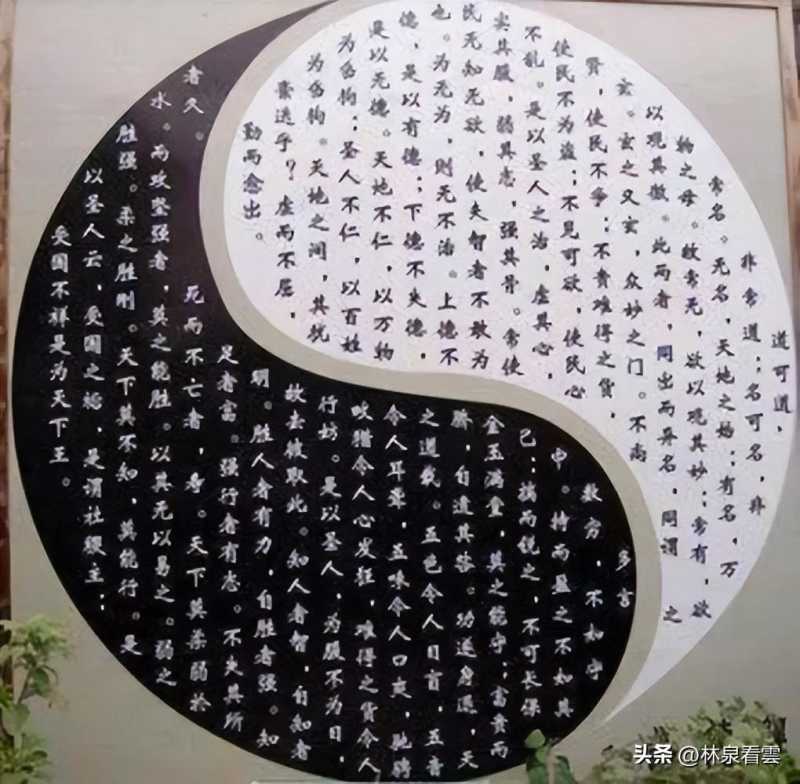 道可道，
非常道；名可名，非
常名。无名，天地之始；有名，万
物之母。故常无，欲以观其妙；常有，欲
以观其徼。此两者，同出而异名，同谓 之
玄。玄之又玄，众妙之门。不尚
贤，使民不争；不贵难得之货，
使民不为盗；不见可欲，使民心
不乱。是以圣人之治，虚其心，
实其腹，弱其志，强其骨。常使
民无知无欲，使夫智者不敢为
也。为无为，则无不治。上德不
德，是以有德；下德不失德，
是以无德。天地不仁，以万物
为刍狗；圣人不仁，以百姓
为刍狗。天地之间，其犹
橐乎？虚而不屈，
勤而愈出。
多言
数穷，不如守
中。持而盈之不如其
己；揣而锐之，不可长保
金玉满堂，莫之能守；富贵而
骄，自遗其咎。功遂身退，天
之道哉。五色令人目盲，五音
令人耳聋，五味令人口爽，驰骋
畋猎令人心发狂，难得之货令人
行妨。是以圣人，为腹不为目，
故去彼取此。知人者智，自知者
明。胜人者有力，自胜者强。知
足者富。强行者有志。不失其所
者久。 死而不亡者，寿。天下莫柔弱於
水。而攻坚强者，莫之能胜。以其无以易之。弱之
胜强。柔之胜刚。天下莫不知，莫能行。是
以圣人云，受国之垢，是谓社稷主；
受国不祥是为天下王。
头条 @林泉看雲